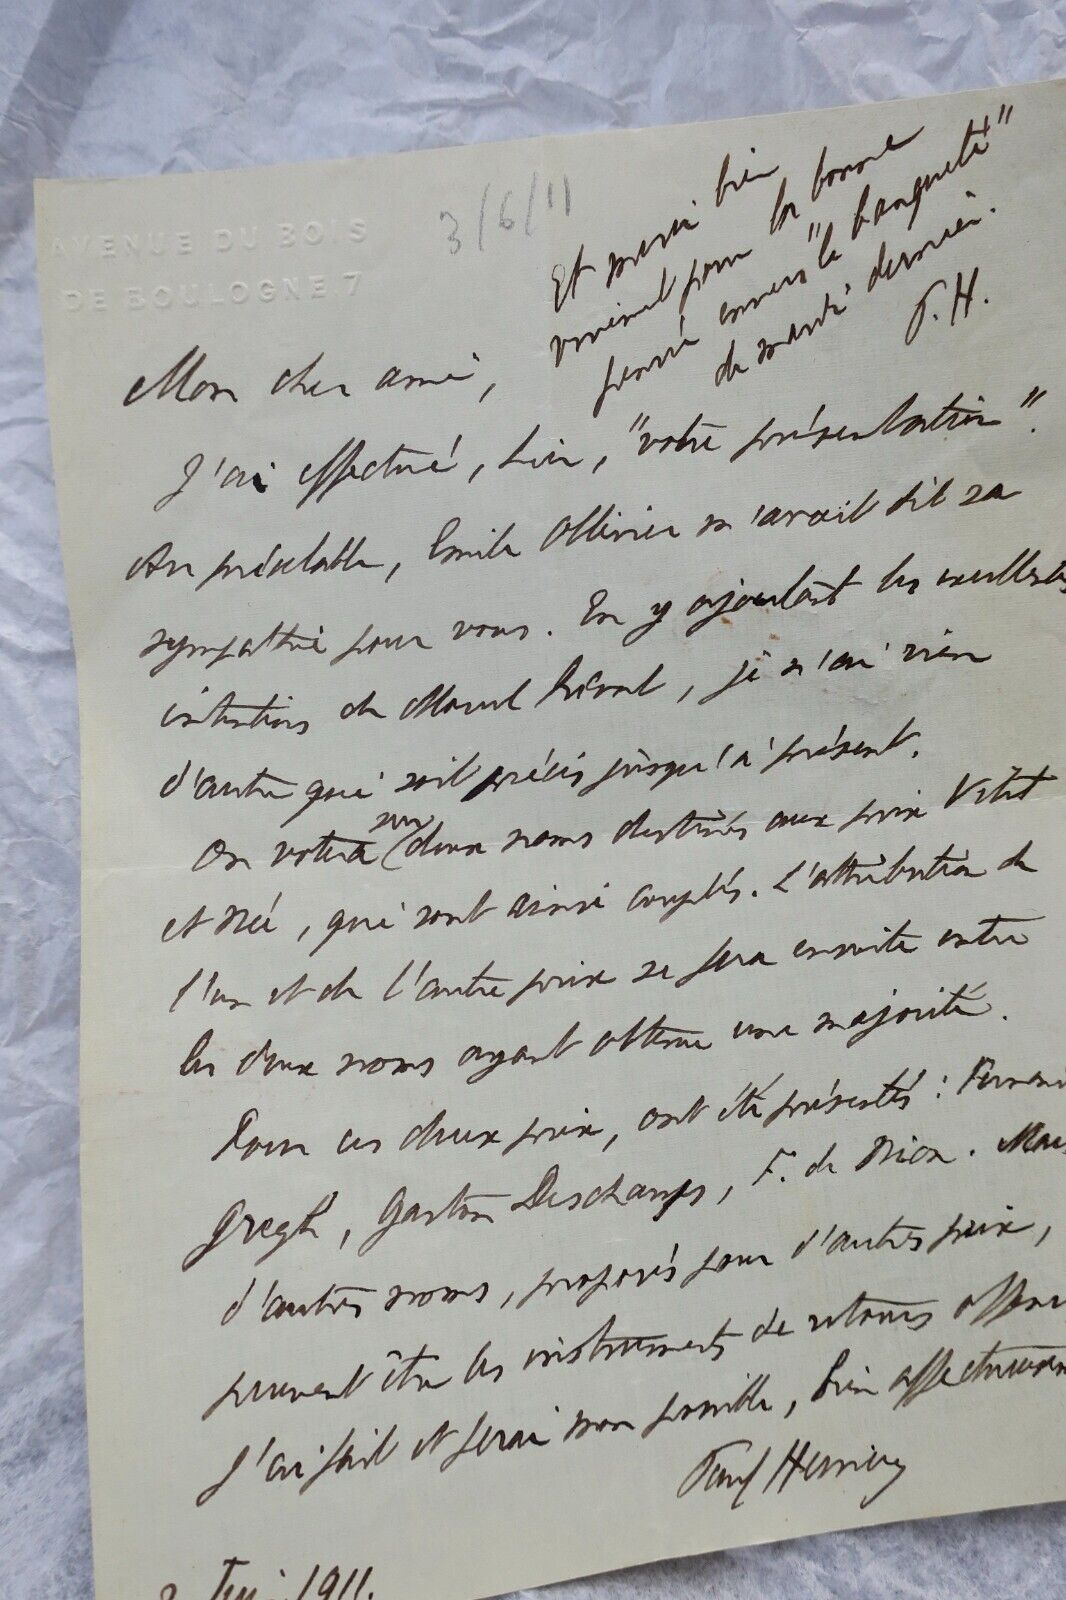 AVENUE DU BOIS
DE BOULOGNE 7
3/6/11
Et merci bien
vivement pour la bonne
pensée envers "le banqueté"
de mardi dernier.
P. H.
Mon cher ami,
J'ai effectué, hier, "votre présentation".
Au préalable, Emile Ollivier m'avait dit sa
sympathie pour vous. En y ajoutant les meilleures
intentions de Marcel Prévost, je n'ai rien
d'autre qui soit précis jusqu'à présent.
On votera sur deux noms destinés aux prix Vitet
et Née, qui sont ainsi couplés. L'attribution de
l'un et de l'autre prix se fera ensuite entre
les deux noms ayant obtenu une majorité.
Pour ces deux prix, ont été présentés :
Gregh, Gaston Deschamps, F. de Nion. Mais
d'autres noms, proposés pour d'autres prix,
peuvent être les instruments de retours
J'ai fait et ferai mon possible, bien
Paul Hervieu
1911.